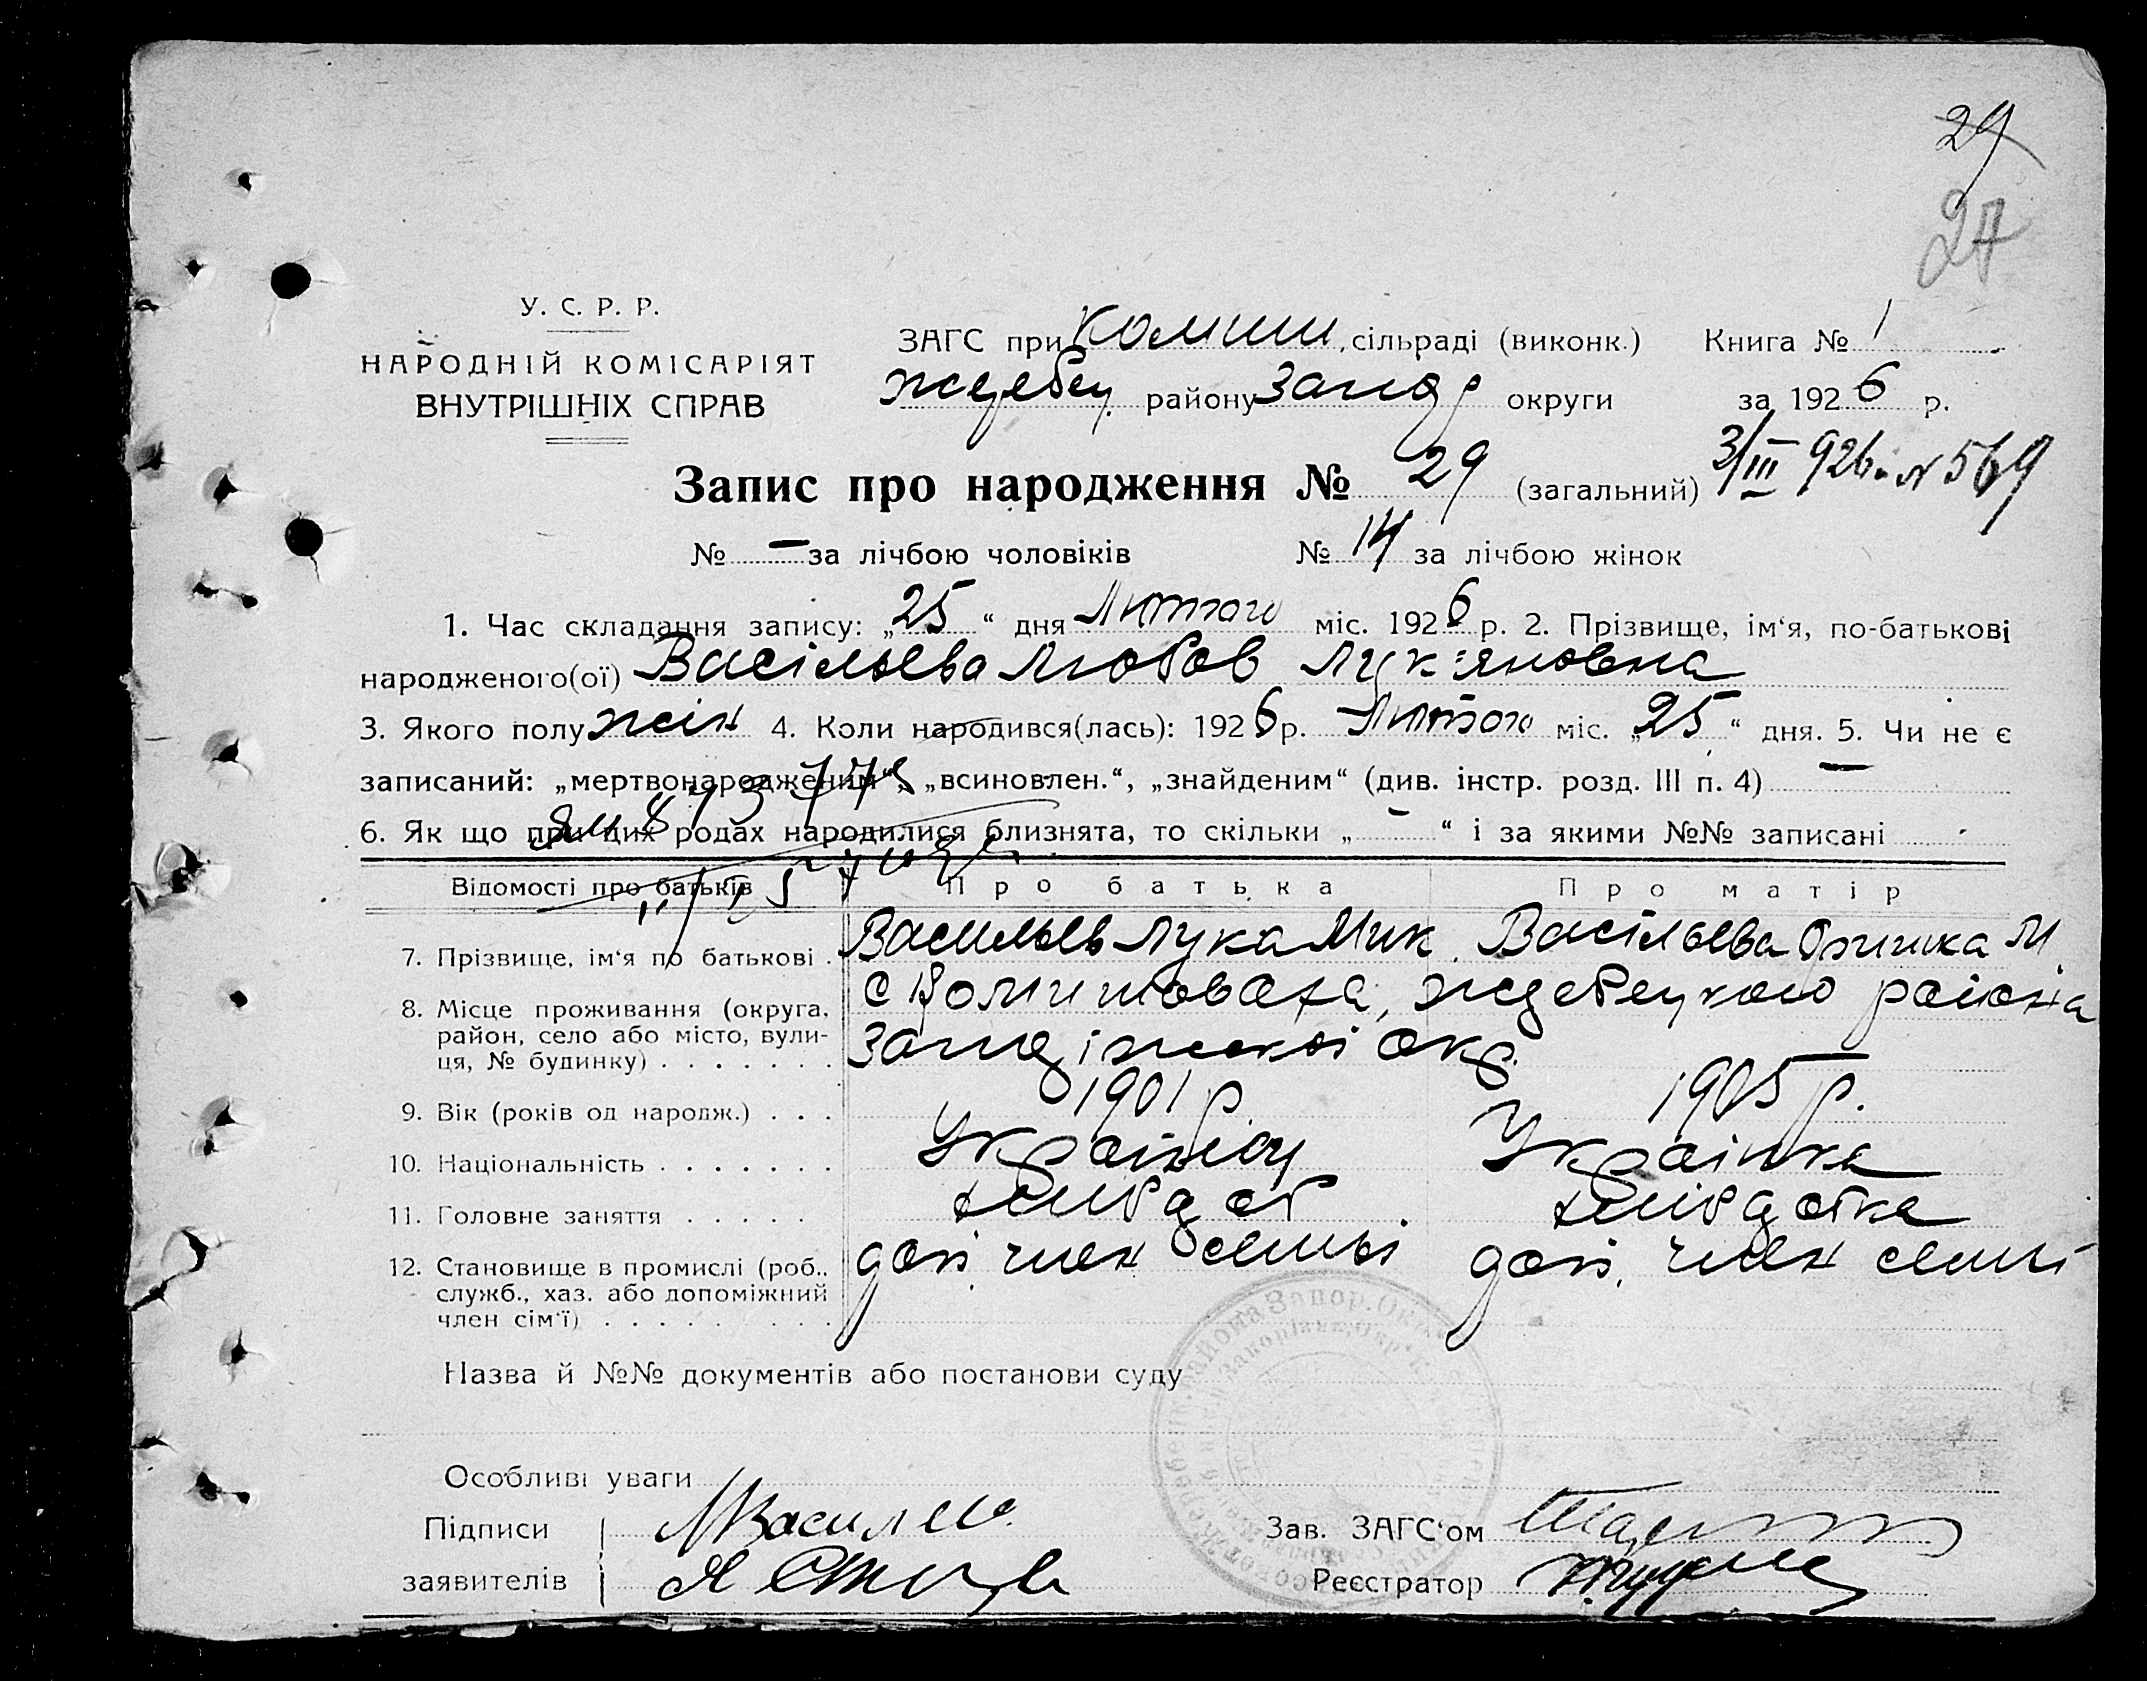 29
27
У. С. Р. Р.
НАРОДНІЙ КОМІСАРІЯТ
ВНУТРІШНІХ СПРАВ
ЗАГС при Комиш. сільраді (виконк.) Книга № 1
Жеребец. району Запор округи за 1926 р.
Запис про народження № 29 (загальний) 3/III 926 N 569
№ — за лічбою чоловіків № 14 за лічбою жінок
1. Час складання запису: „25“ дня Лютого міс. 1926 р. 2. Прізвище, ім‘я, по-батькові
народженого(ої) Васільєва Любов Лук‘яновна
3. Якого полу жін 4. Коли народився(лась): 1926 р. Лютого міс. „25“ дня. 5. Чи не є
записаний: „мертвонародженим“, „всиновлен.“, „знайденим“ (див. інстр. розд. III п. 4) —
6. Як що при цих родах народилися близнята, то скільки „ — “ і за якими №№ записані
Відомості про батьків Про батька Про матір
7. Прізвище, ім‘я по батькові . Васильєв Лука Мик. Васільєва Оришка М.
8. Місце проживання (округа, район, село або місто, вулиця, № будинку) . . . . . . .
с Комишоваха, Жеребецкого района
Запоріжскоі окр.
9. Вік (років од народж.) . . . 1901 р. 1905 р.
10. Національність . . . . . . . Українец Українка
11. Головне заняття . . . . . хлібороб хліборобка
12. Становище в промислі (роб., служб., хаз. або допоміжний член сім‘ї) . . . . . . . .
доп. член семьі доп. член семьі
Назва й №№ документів або постанови суду
Особливі уваги
Підписи
заявителів
Зав. ЗАГС‘ом
Реєстратор